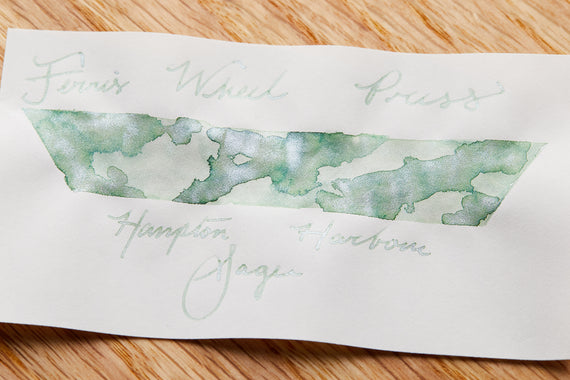 Ferris Wheel Press
Hampton Harbour
Sage